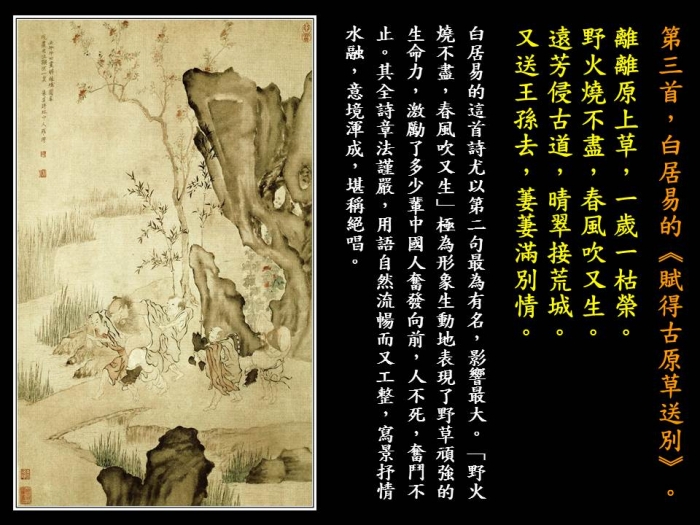 第三首，白居易的《賦得古原草送別》。
離離原上草，一歲一枯榮。
野火燒不盡，春風吹又生。
遠芳侵古道，晴翠接荒城。
又送王孫去，萋萋滿別情。
白居易的這首詩尤以第二句最為有名，影響最大。「野火
燒不盡，春風吹又生」極為形象生動地表現了野草頑強的
生命力，激勵了多少輩中國人奮發向前，人不死，奮鬥不
止。其全詩章法謹嚴，用語自然流暢而又工整，寫景抒情
水融，意境渾成，堪稱絕唱。